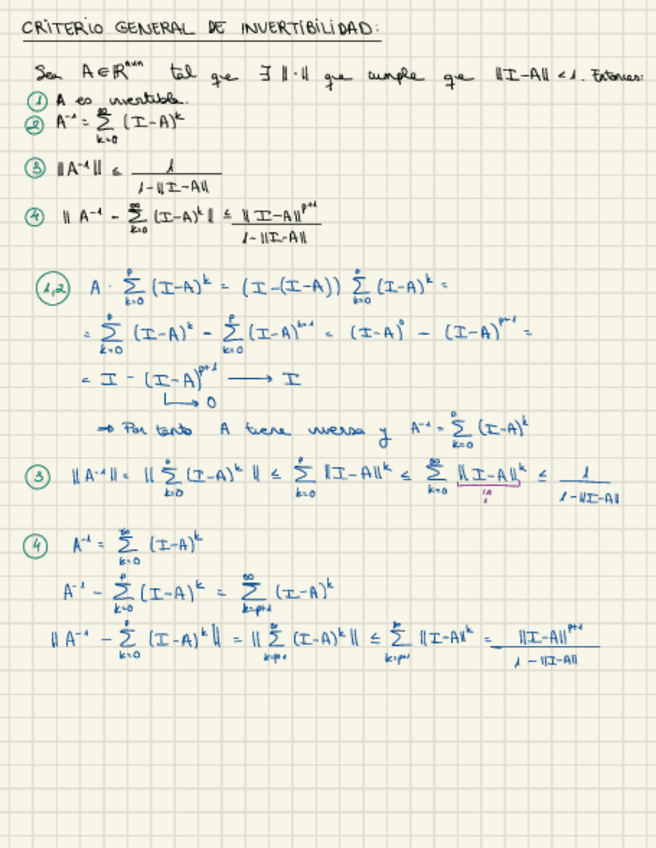 CRITERIO GENERAL DE INVERTIBILIDAD:
Sea A ∈ ℝ^{n×n} tal que ∃ ||·|| que cumple que ||I-A|| < 1. Entonces:
① A es invertible.
② A^{-1} = ∑_{k=0}^{∞} (I-A)^k
③ ||A^{-1}|| ≤ 1 / (1-||I-A||)
④ ||A^{-1} - ∑_{k=0}^{∞} (I-A)^k|| ≤ ||I-A||^{p+1} / (1-||I-A||)
1,2 A · ∑_{k=0}^{p} (I-A)^k = (I-(I-A)) ∑_{k=0}^{p} (I-A)^k =
= ∑_{k=0}^{p} (I-A)^k - ∑_{k=0}^{p} (I-A)^{k+1} = (I-A)^0 - (I-A)^{p+1} =
= I - (I-A)^{p+1} ⟶ I
↳ 0
⇒ Por tanto A tiene inversa y A^{-1} = ∑_{k=0}^{p} (I-A)^k
③ ||A^{-1}|| = ||∑_{k=0}^{p} (I-A)^k|| ≤ ∑_{k=0}^{p} ||I-A||^k ≤ ∑_{k=0}^{∞} ||I-A||^k ≤ 1 / (1-||I-A||)
④ A^{-1} = ∑_{k=0}^{∞} (I-A)^k
A^{-1} - ∑_{k=0}^{p} (I-A)^k = ∑_{k=p+1}^{∞} (I-A)^k
||A^{-1} - ∑_{k=0}^{p} (I-A)^k|| = ||∑_{k=p+1}^{∞} (I-A)^k|| ≤ ∑_{k=p+1}^{∞} ||I-A||^k = ||I-A||^{p+1} / (1-||I-A||)